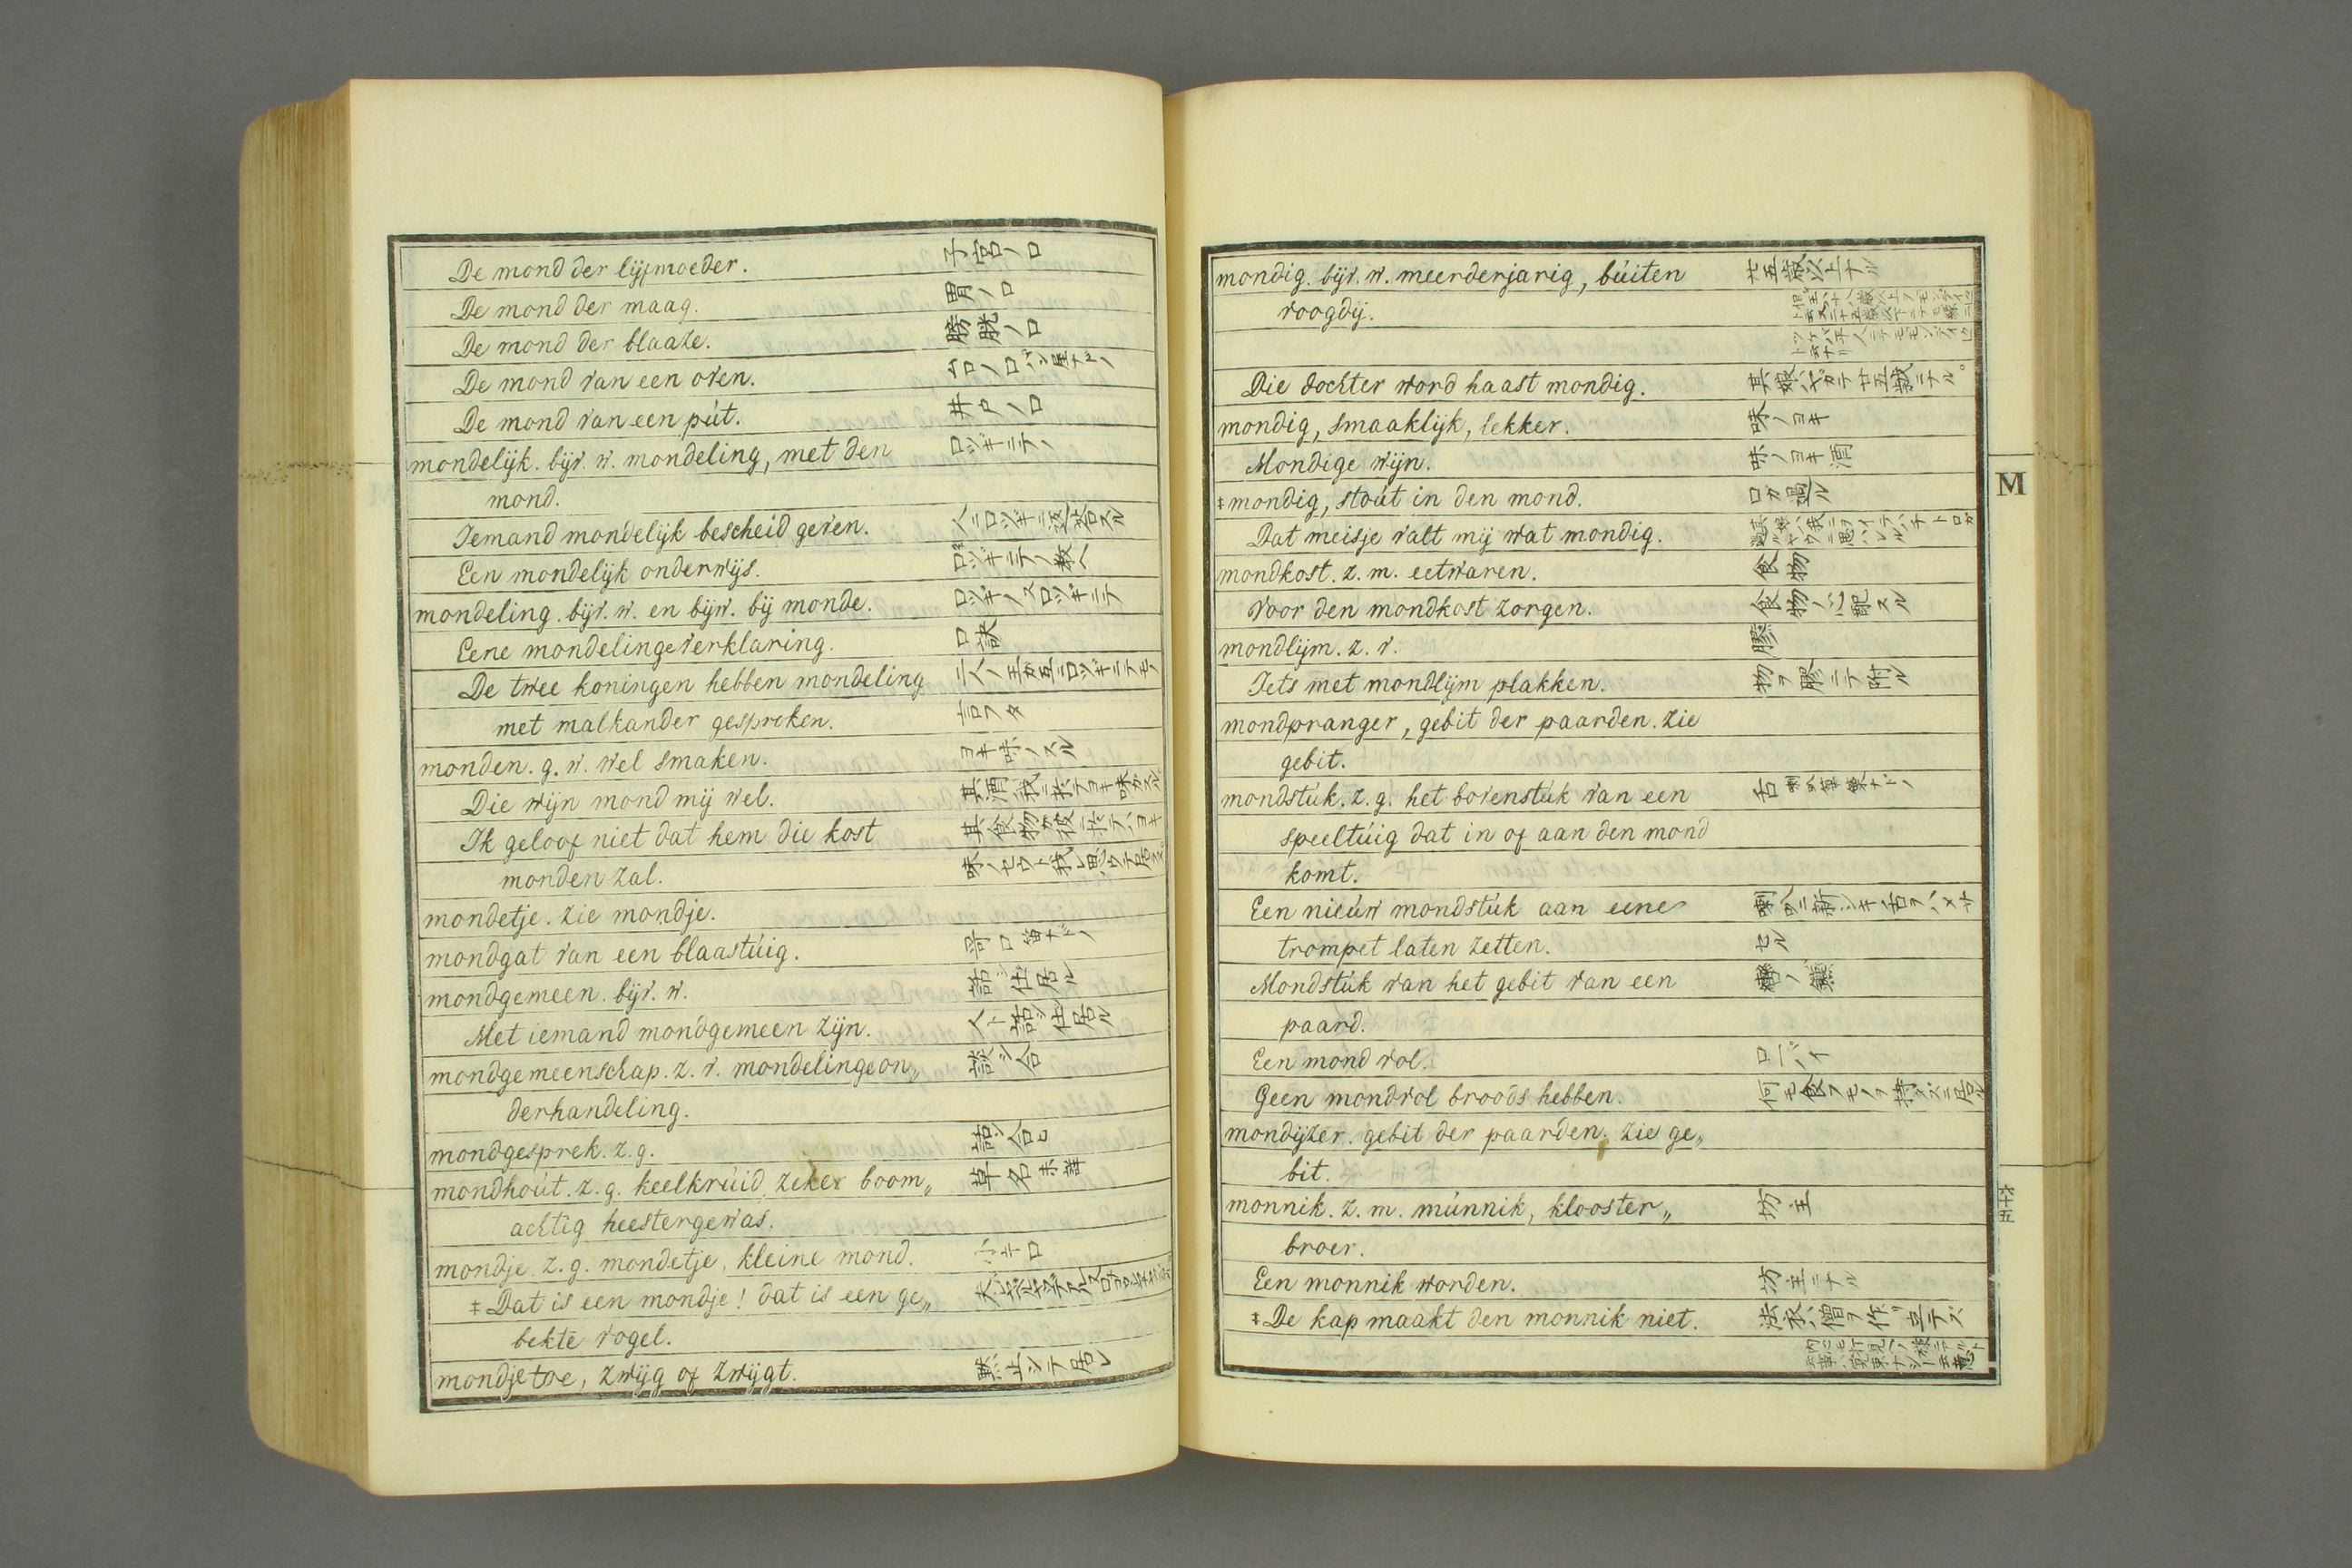 De mond der lijfmoeder. 子宮ノ口
De mond der maag. 胃ノ口
De mond der blaaze. 膀胱ノ口
De mond van een oven.
De mond van een pút. 井戸ノ口
mondelijk. bijv. w. mondeling, met den 口ヅキニテノ
mond.
Iemand mondelijk bescheid geven. 人ニ口ヅキニ返答スル
Een mondelijk onderwijs. 口ヅキニテノ教ヘ
mondeling. bijv. w. en bijw. bij monde. 口ヅキノ又口ヅキニテ
Eene mondelinge verklaring. 口訣
De twee koningen hebben mondeling 二人ノ王ガ互ニ口ヅキニテモノ
met malkander gesproken. 言フタ
monden. g. w. wel smaken. ヨキ味ノスル
Die wijn mond mij wel. 其酒ハ我ニ於テヨキ味ガスル
Ik geloof niet dat hem die kost 其食物ガ彼ニ於テハヨキ
monden zal.
mondetje. zie mondje.
mondgat van een blaastúig.
mondgemeen. bijv. w. 話シ仕居ル
Met iemand mondgemeen zijn. 人ト話シ仕居ル
mondgemeenschap. z. v. mondelinge on„ 談シ合
derhandeling.
mondgesprek. z. g. 話シ合ヒ
mondhoút. z. g. keelkrúid, zeker boom„ 草名 未詳
achtig heestergewas.
mondje. z. g. mondetje, kleine mond. 小キ口
‡ Dat is een mondje! dat is een ge„
bekte vogel.
mondje toe, zwijg of zwijgt. 黙止シテ居レ
mondig. bijv. w. meerderjarig, búiten 廿五歳以上ナル
voogdij.
Die dochter word haast mondig. 其娘ハヤガテ廿五歳ニナル。
mondig, smaaklijk, lekker. 味ノヨキ
Mondige wijn. 味ノヨキ酒
‡ mondig, stoút in den mond. 口ガ過ル
Dat meisje valt mij wat mondig.
mondkost. z. m. eetwaren. 食物
Voor den mondkost zorgen. 食物ノ心配スル
mondlijm. z. v. 膠
Iets met mondlijm plakken. 物ヲ膠ニテ附ル
mondpranger, gebit der paarden. zie
gebit.
mondstúk. z. g. het bovenstúk van een 舌
speeltúig dat in of aan den mond
komt.
Een nieúw mondstúk aan eene 喇叭ニ新シキ舌ヲハメサ
trompet laten zetten. セル
Mondstúk van het gebit van een
paard.
Een mond vol. 口一ハイ
Geen mondvol broods hebben. 何モ食フモノヲ持タズニ居ル
mondijzer. gebit der paarden. zie ge„
bit.
monnik. z. m. múnnik, klooster„ 坊主
broer.
Een monnik worden. 坊主ニナル
‡ De kap maakt den monnik niet. 法衣ハ僧ヲ作リ立テズ
M